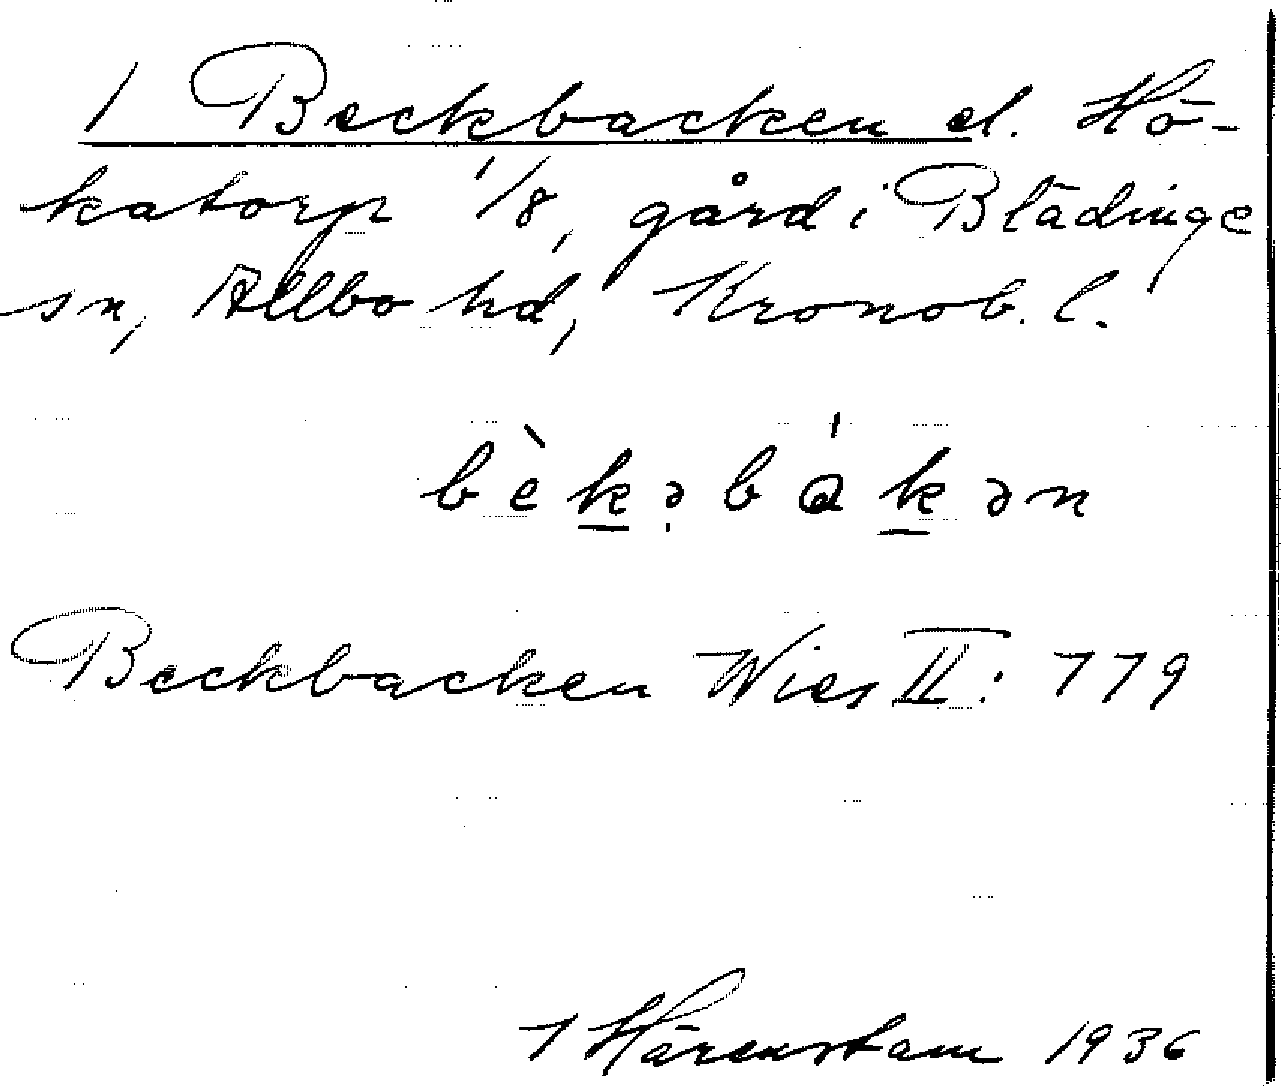 1 Beckbacken el. Hö-
katorp 1/8, gård i Blädinge
sn, Allbo hd, Kronob. l.
bèk̲ə̣bákən
Beckbacken Wies II: 779
Härenstam 1936